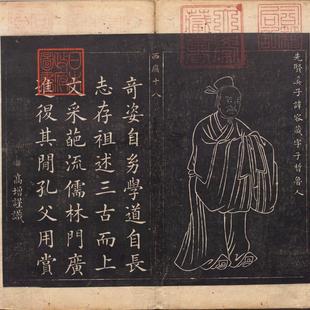 先賢奚子諱容蒧字子晳魯人
西廡十八
奇姿自幼學道自長
志存祖述三古而上
文采葩流儒林門廣
進其間孔父用賞
高增謹識